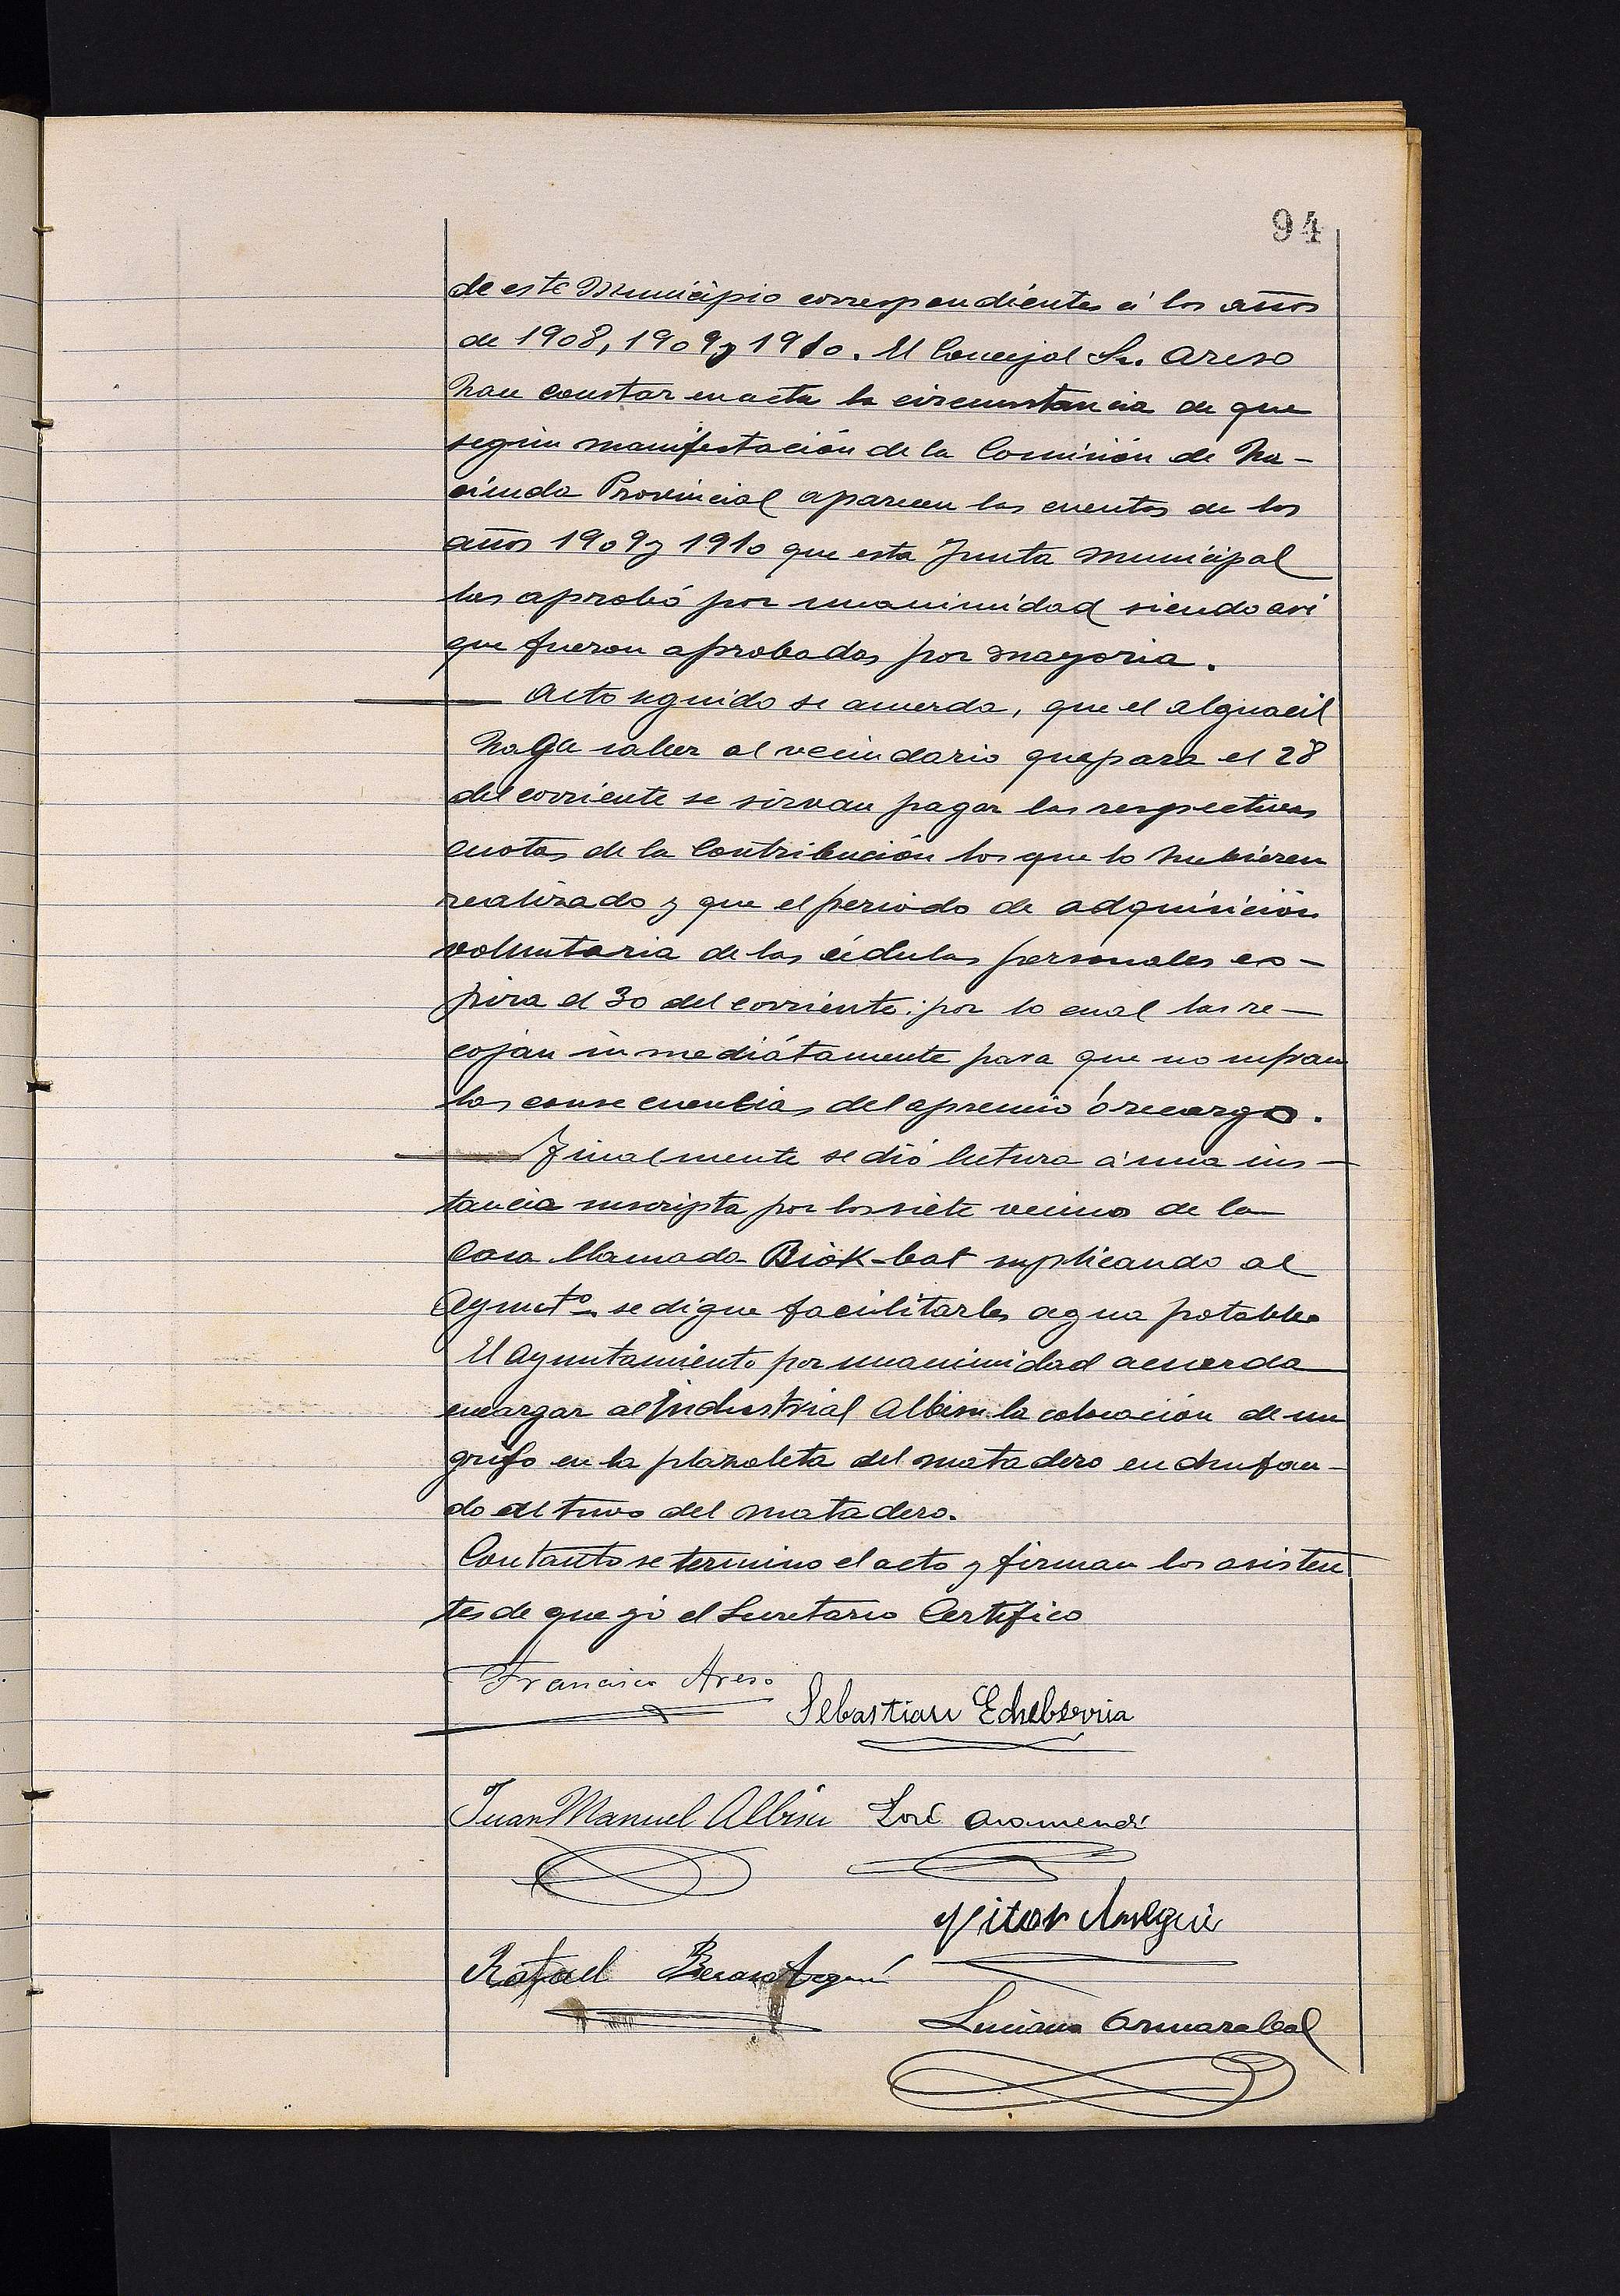 94
de este Municipio correspondientes á los años
de 1908, 1909 y 1910. El Concejal Sr. Areso
hace constar en acta la circunstancia de que
según manifestación de la Comisión de ha-
cienda Provincial aparecen las cuentas de los
años 1909 y 1910 que esta Junta municipal
las aprobó por unanimidad siendo asi
que fueron aprobadas por mayoria.
Acto seguido se acuerda, que el alguacil
haga saber al vecindario que para el 28
del corriente se sirvan pagar las respectivas
cuotas de la Contribución los que lo hubieren
realizado y que el periodo de adquisición
voluntaria de las cédulas personales es-
pira el 30 del corriente: por lo cual las re-
cojan inmediátamente para que no sufran
las consecuencias del apremio ó recargo.
Finalmente se dió lectura á una ins-
tancia suscripta por los siete vecinos de la
Casa llamada Biok-bat suplicando al
Ayunt.º se digne facilitarles agua potable
El Ayuntamiento por unanimidad acuerda
encargar al industrial Albisu la colocación de un
grifo en la plazoleta del matadero enchufan-
do al tuvo del matadero.
Con tanto se termino el acto y firman los asisten
tes de que yó el Secretario Certifico
Francisco Areso
Sebastian Echeberria
Juan Manuel Albisu José Aramendi
Vitor
Rafael Berasategui
Luciano